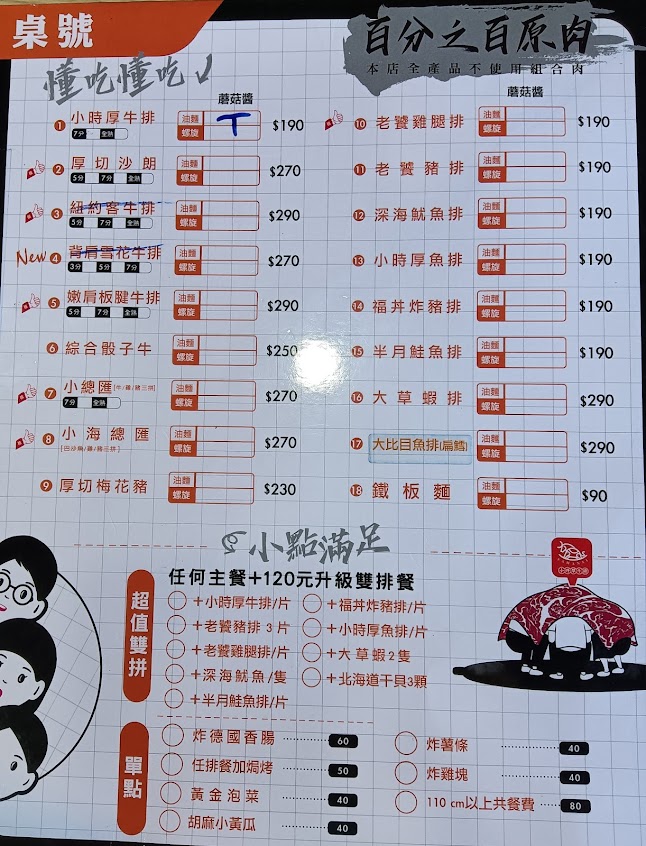 桌號
懂吃懂吃
百分之百原肉
本店全產品不使用組合肉
蘑菇醬
1 小時厚牛排 油麵 螺旋 T $190
7分 全熟
2 厚切沙朗 油麵 螺旋 $270
5分 7分 全熟
3 紐約客牛排 油麵 螺旋 $290
5分 7分 全熟
New 4 背肩雪花牛排 油麵 螺旋 $270
3分 5分 7分
5 嫩肩板腱牛排 油麵 螺旋 $290
5分 7分 全熟
6 綜合骰子牛 油麵 螺旋 $250
7 小總匯[牛/雞/豬三拼] 油麵 螺旋 $270
7分 全熟
8 小海總匯 油麵 螺旋 $270
9 厚切梅花豬 油麵 螺旋 $230
蘑菇醬
10 老饕雞腿排 油麵 螺旋 $190
11 老饕豬排 油麵 螺旋 $190
12 深海魷魚排 油麵 螺旋 $190
13 小時厚魚排 油麵 螺旋 $190
14 福丼炸豬排 油麵 螺旋 $190
15 半月鮭魚排 油麵 螺旋 $190
16 大草蝦排 油麵 螺旋 $290
17 大比目魚排(扁鱈) 油麵 螺旋 $290
18 鐵板麵 油麵 螺旋 $90
小點滿足
任何主餐+120元升級雙排餐
超值雙拼
+小時厚牛排/片
+老饕豬排3片
+老饕雞腿排/片
+深海魷魚/隻
+半月鮭魚排/片
+福丼炸豬排/片
+小時厚魚排/片
+大草蝦2隻
+北海道干貝3顆
單點
炸德國香腸 60
任排餐加焗烤 50
黃金泡菜 40
胡麻小黃瓜 40
炸薯條 40
炸雞塊 40
110 cm以上共餐費 80